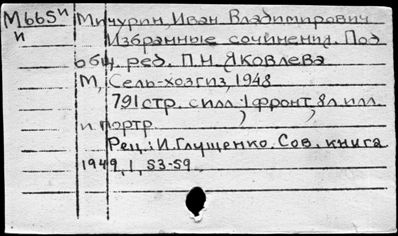 М665и Мичурин, Иван Владимирович
и Избранные сочинения. Под
общ. ред. П.Н. Яковлева
М, Сельхозгиз, 1948
791 стр. с илл. 1 фронт, 8 л. илл.
и портр.
Рец.: И. Глущенко. Сов. книга
1949, 1, 53-59